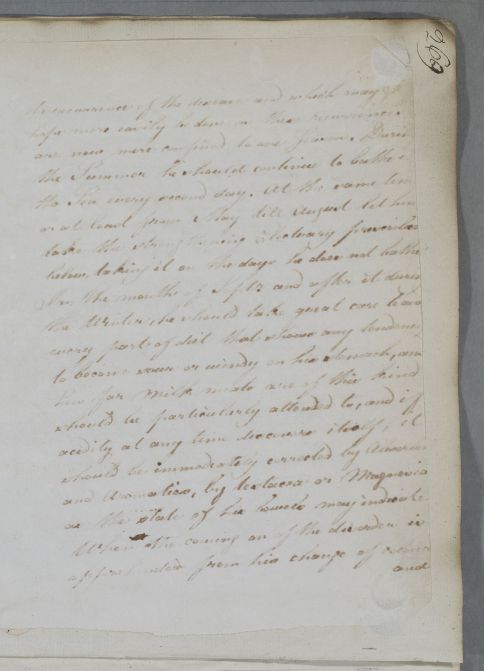 269
recurrence of the disease and which may I
hope more easily be done as the recurrences
are now more confined to one form. During
the Summer he should continue to bathe in
the Sea every second day. At the same time
or at least from May till August let him
take the strengthening Electuary prescribed
below, taking it on the days he does not bathe
In the months of Septr and after it during
the Winter, he should take great care to avoid
every part of diet that shows any tendency
to become sour or windy on his stomach, and
how far Milk meats are of this kind
should be particularly attended to, and if
acidity at any time discovers itself, it
should be immediately corrected by
and Aromatics, by testacea or Magnesia
as the state of his bowels may indicate
When the coming on of the disorder is
apprehended from his change of colour
and